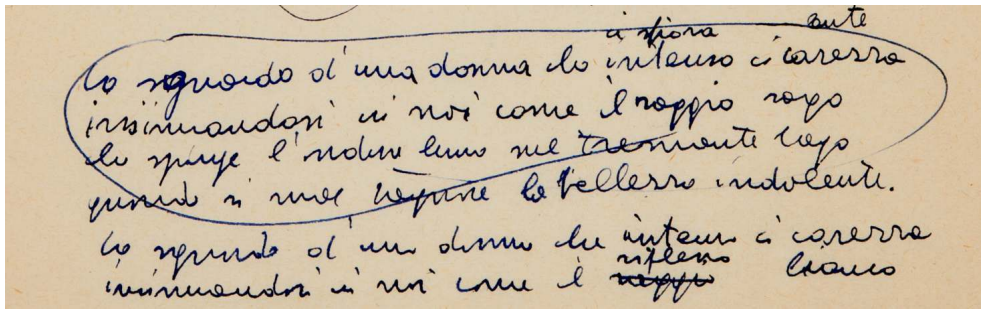 ci sfiora ante
lo sguardo d'una donna che intenso ci carezza
insinuandosi in noi come il raggio vago
che spinge l'ondine luna nel tremante lago
quando vi vuol bagnare la bellezza indolente.
Lo sguardo d'una donna che intenso ci carezza
insinuandosi in noi come il riflesso
raggio bianco